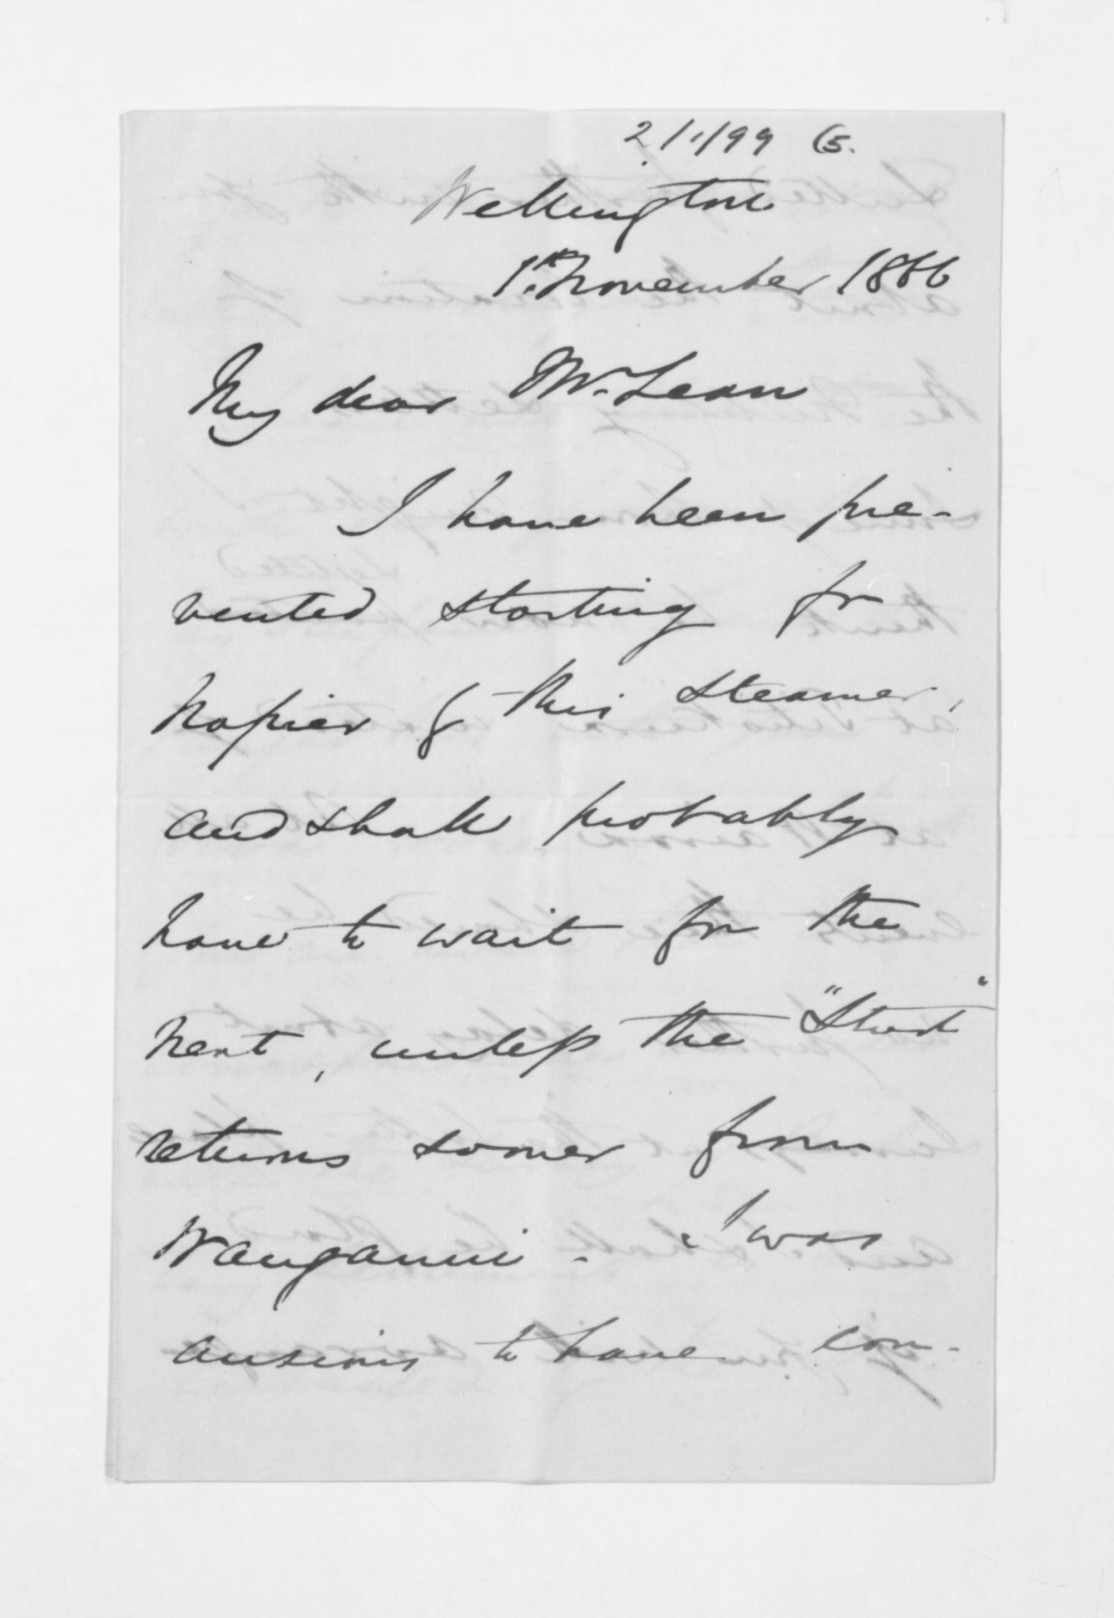 2/1/99 (5.
Wellington
1st November 1866
My dear McLean
I have been pre-
vented starting for
Napier by this steamer,
and shall probably
have to wait for the
next, unless the "Sturt"
returns sooner from
Wanganui. I was
anxious to have com-